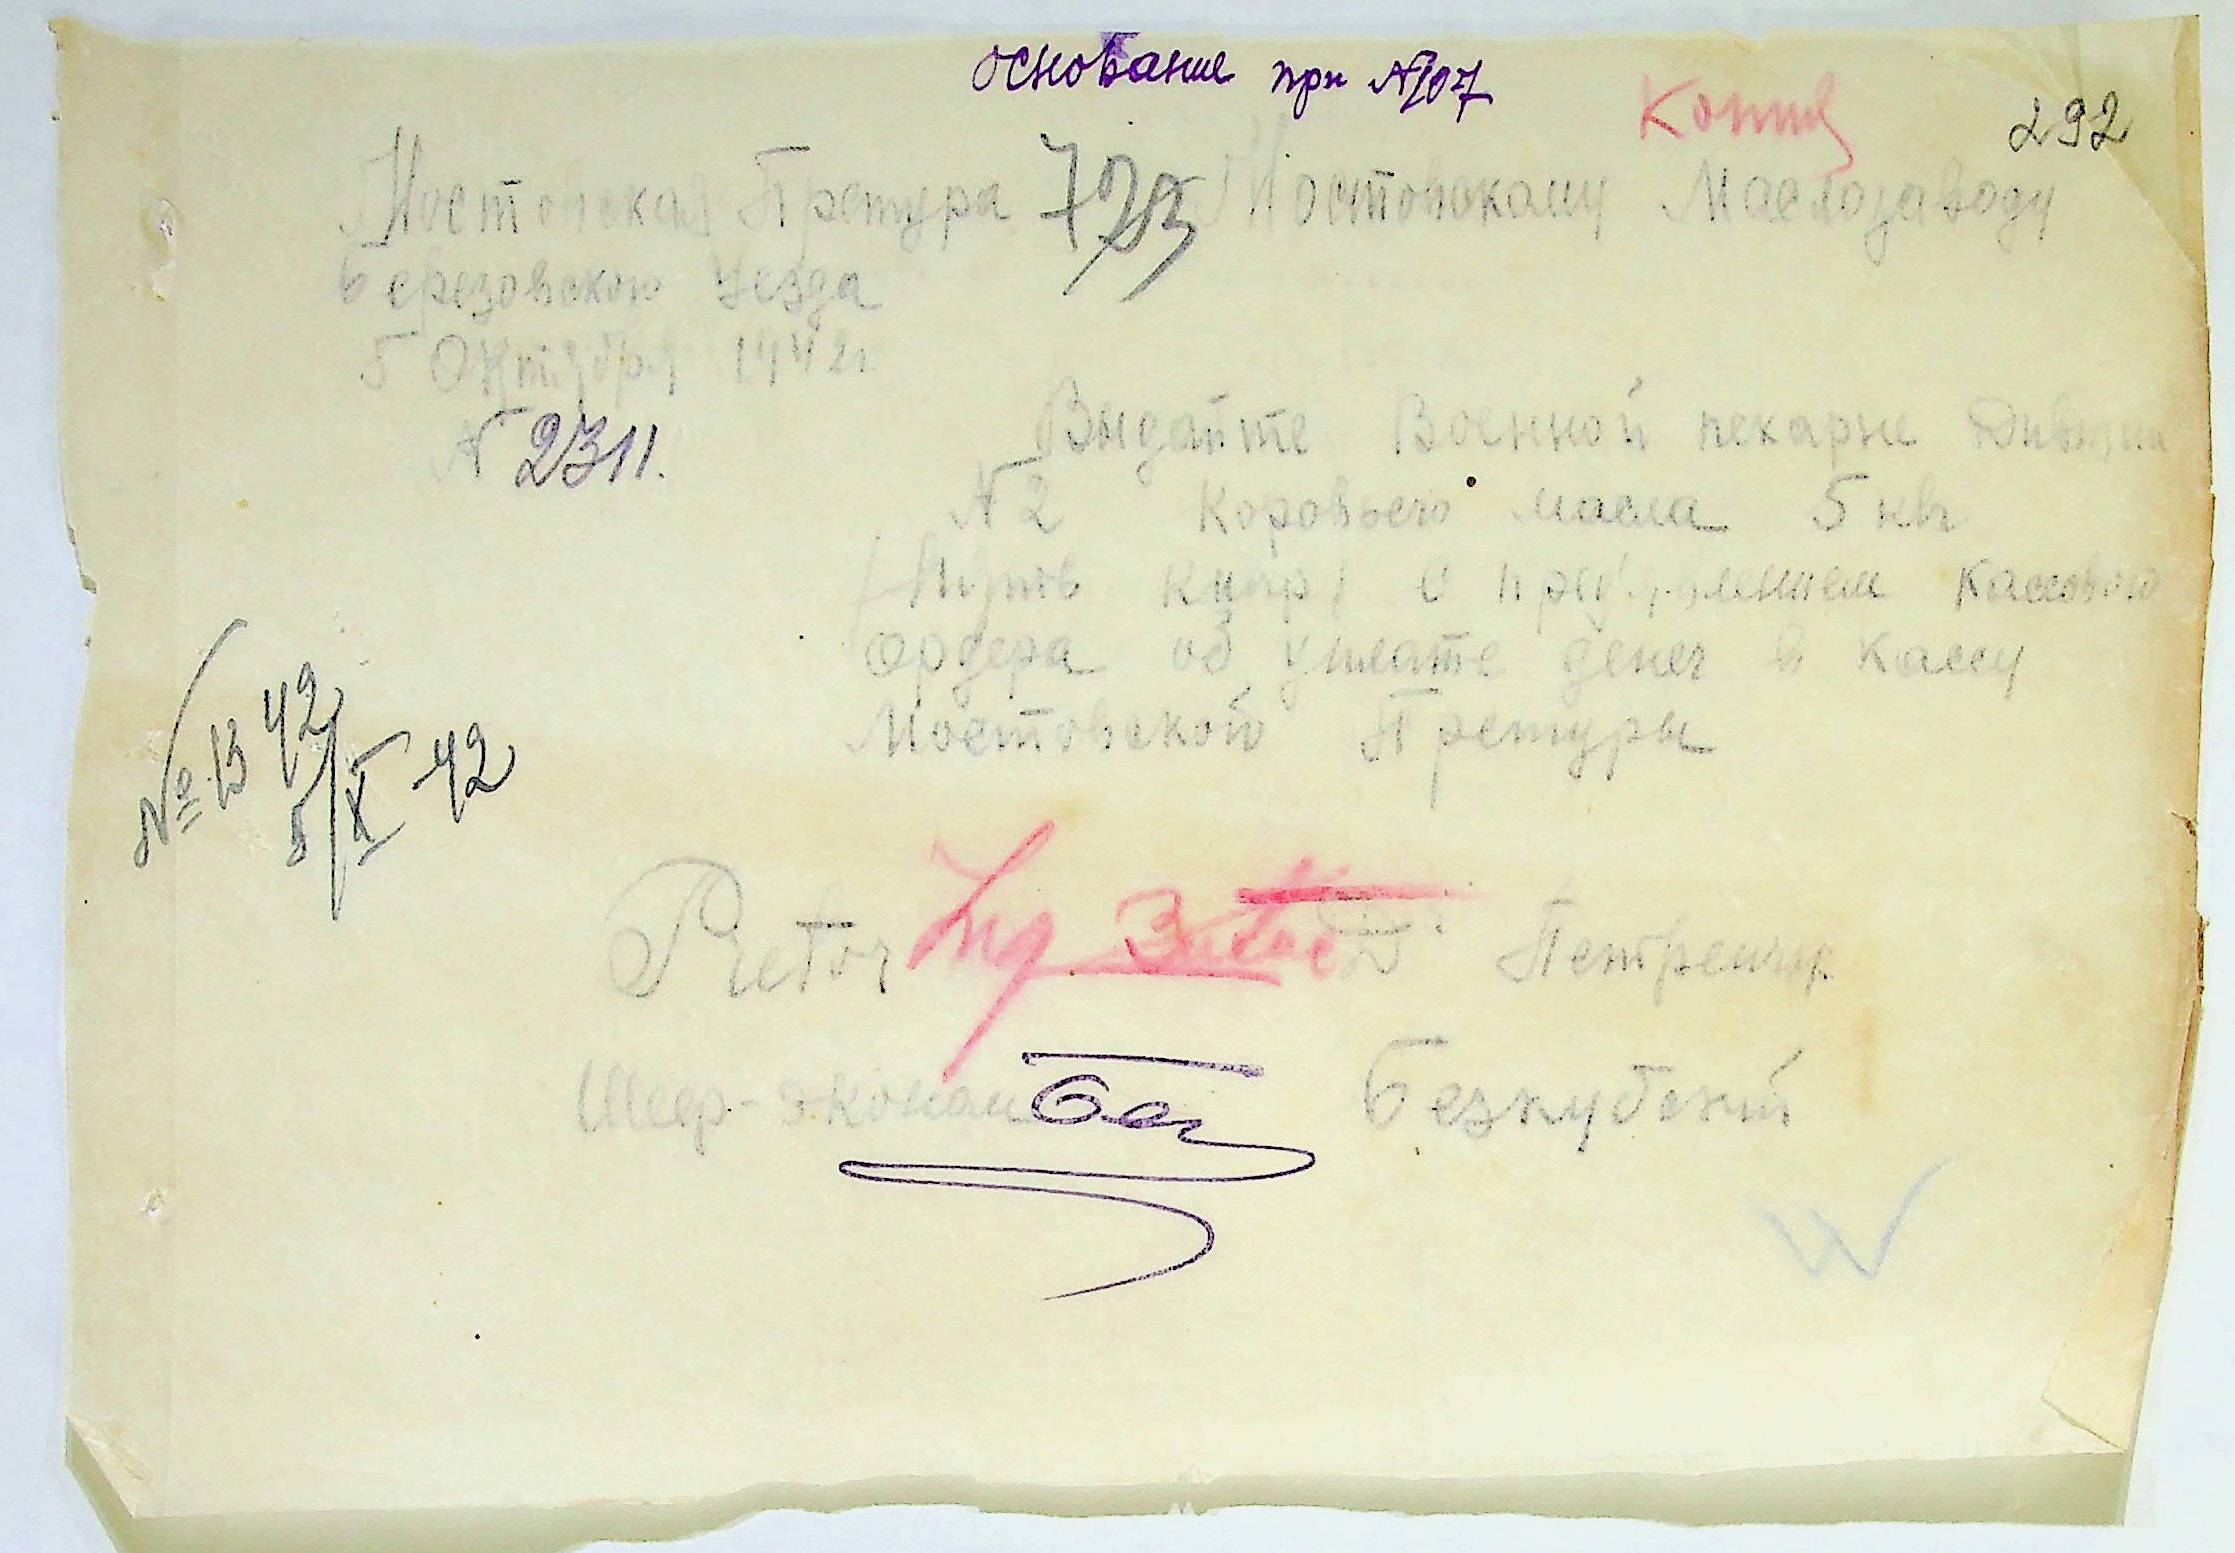 основание при №107
Копия
292
Мостовская Претура
723
Мостовскому Маслозаводу
Березовского Уезда
5 Октября 1942г.
№ 2311.
Выдайте Военной пекарне
№2 Коровьего масла 5 квг
/Пять Килгр/ с Кассового
Ордера об уплате денег в Кассу
Мостовской Претуры
№ 13 42
5/X 42
Pretor
Петренчук
Шеф-эконом
Безкубский